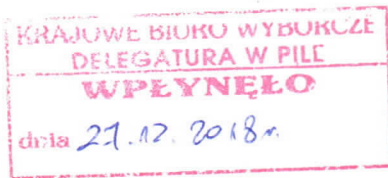 KRAJOWE BIURO WYBORCZE
DELEGATURA W PILE
WPŁYNĘŁO
dnia 27.12.2018r.